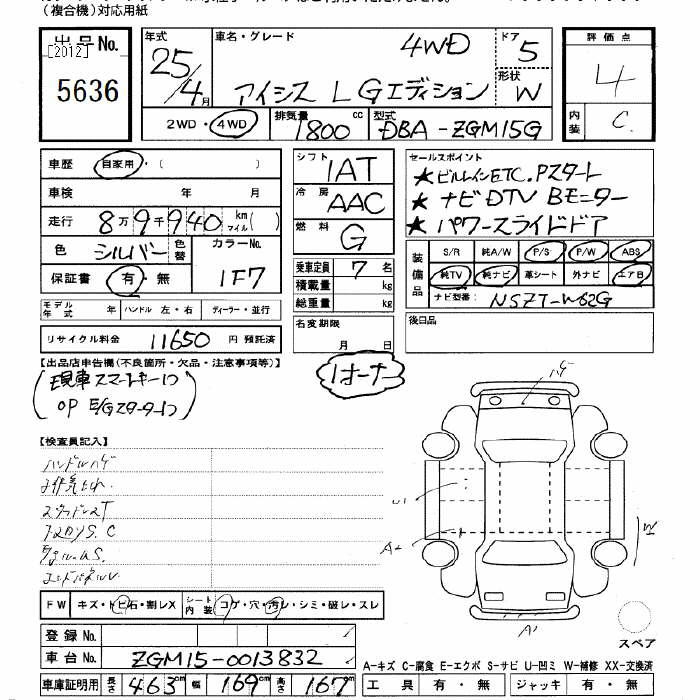 (複合機)対応用紙
出品No.
[2012]
5636
年式
25/4月
車名・グレード
4WD
アイシス L Gエディション
ドア
5
形状
W
2WD・4WD
排気量
1800 cc
型式
DBA-ZGM15G
評価点
4
内装
C
車歴 自家用・( )
車検 年 月
走行 8万9千940 km マイル( )
色 シルバー 色替 カラーNo.
1F7
保証書 有・無
モデル年式 年 ハンドル 左・右 ディーラー・並行
リサイクル料金 11650 円 預託済
シフト
1AT
冷房
AAC
燃料
G
乗車定員 7 名
積載量 kg
総重量 kg
名変期限
月 日
セールスポイント
★ビルトインETC.Pスタート
★ナビDTV Bモニター
★パワースライドドア
装備品
S/R 純A/W P/S P/W ABS
純TV 純ナビ 革シート 外ナビ エアB
ナビ型番: NSZT-W62G
後日品
【出品店申告欄(不良箇所・欠品・注意事項等)】
(現車スマートキー1コ
OP E/Gスターター1コ)
1オーナー
【検査員記入】
ハンドルハゲ
F W キズ・トビ石・割レX
シート内装 コゲ・穴・汚レ・シミ・破レ・スレ
登録No.
車台No. ZGM15-0013832
車庫証明用 長さ 463cm 幅 169cm 高さ 167cm
ハゲ
U1
A2
W
スペア
A-キズ C-腐食 E-エクボ S-サビ U-凹ミ W-補修 XX-交換済
工具 有・無 ジャッキ 有・無